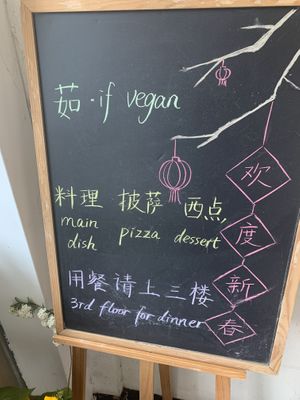 茹·if vegan
料理 披萨 西点
main dish pizza dessert
用餐请上三楼
3rd floor for dinner
欢
度
新
春